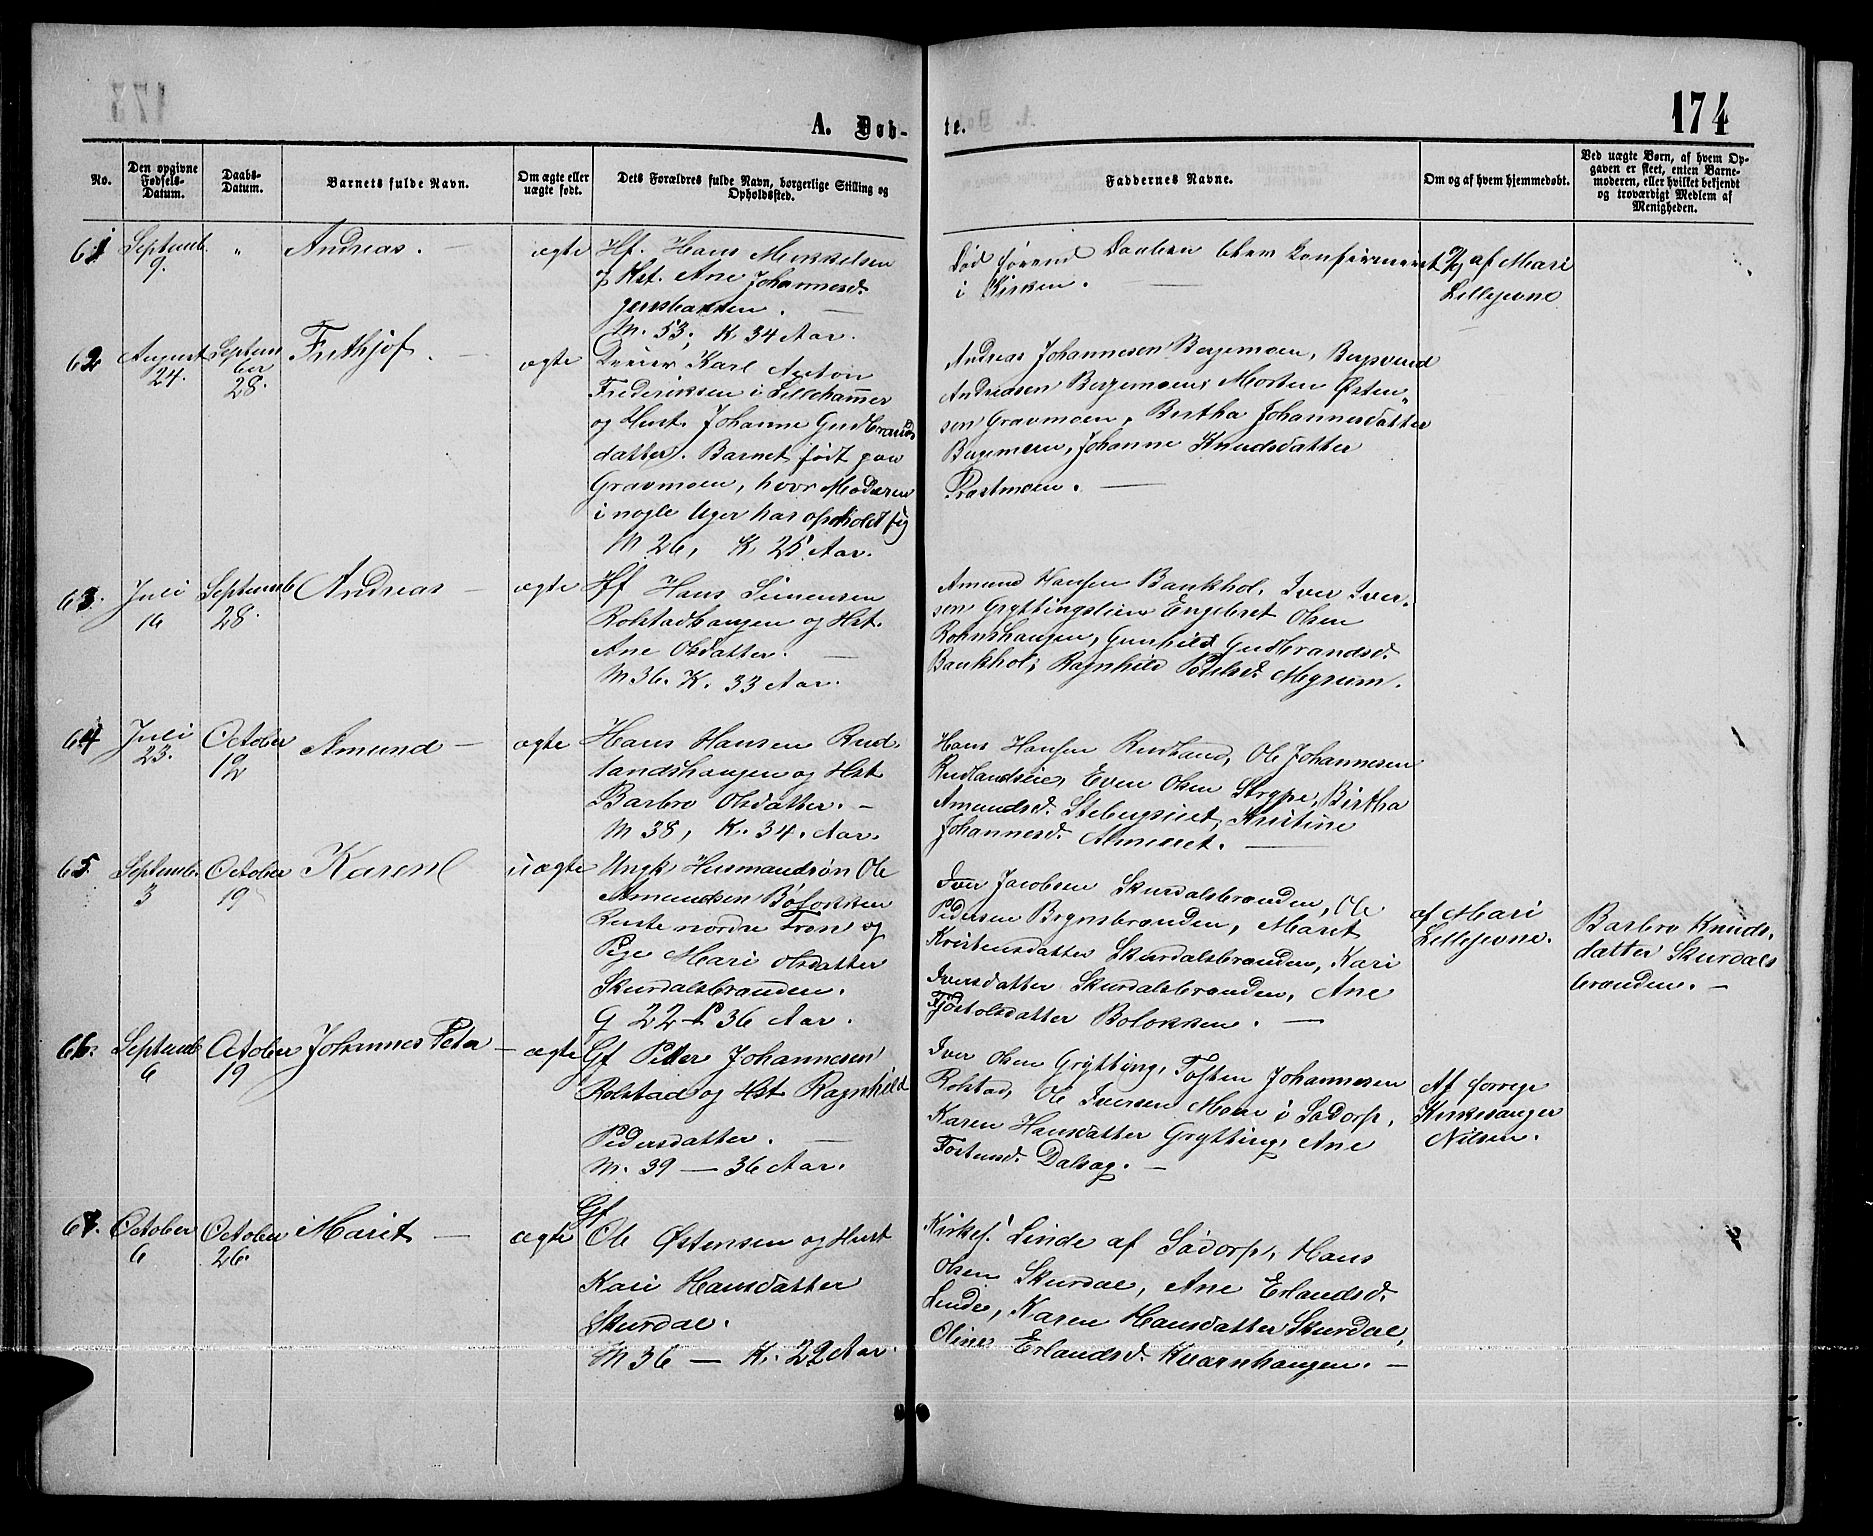 174
A. Døb-
te.
No.
Den opgivne Fødsels-Datum.
Daabs-Datum.
Barnets fulde Navn.
Om ægte eller uægte født.
Dets Forældres fulde Navn, borgerlige Stilling og Opholdssted.
Faddernes Navne.
Om og af hvem hjemmedøbt.
Ved uægte Børn, af hvem Op-
gaven er skeet, enten Barne-
moderen, eller hvilket bekjendt
og troværdigt Medlem af
Menigheden.
61
Septemb.
9.
"
Andreas. —
ægte
Hf. Hans Mikkelsen
og Hst. Ane Johannesd.
M. 53; K 34 Aar.
Død førend Daaben blev Confirmeret
i Kirken. —
af Mari
Lillejevne
62
August
24.
Septem
ber
28.
Frithjof. —
ægte
Dreier Karl Anton
Frederiksen i Lillehamer
og Hust. Johanne Gudbrands
datter. Barnet født paa
Gravmoen, hvor Moderen
i nogle Uger har opholdt sig
M 26, K 25 Aar.
Andreas Johannesen Bergemoen, Bergsvend
Andreasen Bergemoen, Morten Østen-
sen Gravmoen, Bertha Johannesdatter
Bergemoen, Johanne Knudsdatter
Præstmoen. —
63.
Juli
16
Septemb
28.
Andreas —
ægte
Hf Hans Simensen
Rolstadhaugen og Hst.
Ane Olsdatter. —
M 36. K. 33 Aar.
Amund Hansen Baukhol, Iver Iver-
sen Gryttingslien Engebret Olsen
Rohnshaugen, Gunhild Gudbrandsd.
Baukhol, Ragnhild Megrum.
64
Juli
23.
October
12
Amund —
ægte
Hans Hansen Rud
landshaugen og Hst
Barbro Olsdatter. —
M 38, K. 34. Aar.
Hans Hansen Rudland, Ole Johannesen
Rudlandseie, Even Olsen Strype, Birtha
Amundsd. Stebergseiet, Kristine
Johannesd. —
65.
Septemb.
3
October
19
Karen
uægte
Ungk. Husmandsøn Ole
Amundsen Böløkken
nordre Fron og
Pige Mari Olsdatter
Skurdalsbrauden.
G 22 P 36 Aar.
Iver Jacobsen Skurdalsbrænden, Ole
Pedersen Brynsbrænden, Marit
Kristensdatter Skurdalsbrænden, Kari
Iversdatter Skurdalsbrænden, Ane
Tjøstolsdatter Boløkken. —
af Mari
Lillejevne.
Barbro Knuds-
datter Skurdals
brænden. —
66.
Septemb
6
October
19
Johannes Peter —
ægte
Gf Peter Johannesen
Rolstad og Hst Ragnhild
Pedersdatter. —
M. 39 — 36 Aar.
Iver Olsen Grytting, Tosten Johannesen
Rolstad, Ole Iversen Moen i Sødorp,
Karen Hansdatter Grytting, Ane
Tostensd. Dalsag. —
Af forrige
Kirkesanger
Nilsen.
67.
October
6
October
26.
Marit —
ægte
Gf
Ole Østensen og Hust
Kari Hansdatter
Skurdal.
M 36 — K. 22 Aar.
Kirkes. Linde af Sødorp, Hans
Olsen Skurdal, Ane Erlandsd.
Linde, Karen Hansdatter Skurdal,
Oline Erlandsd. Kvarnhaugen. —